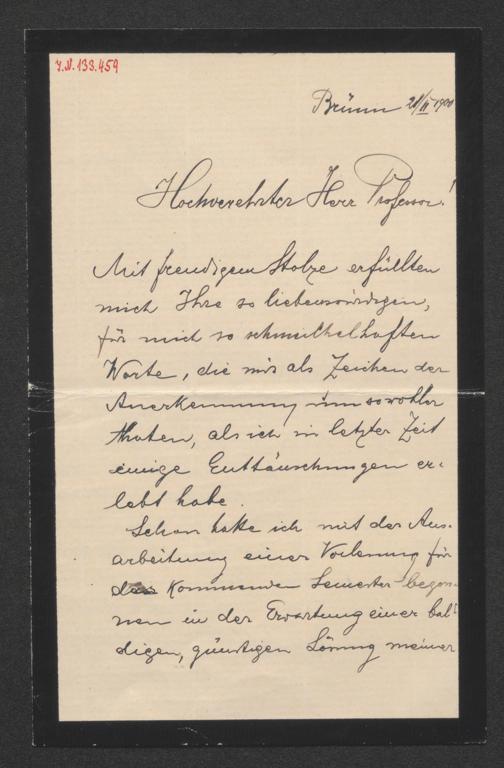 J.N. 133.459
Brünn 21/II 1900
Hochverehrter Herr Professor!
Mit freudigem Stolze erfüllten
mich Ihre so liebenswürdigen,
für mich so schmeichelhaften
Worte, die mir als Zeichen der
Anerkennung um so wohler
thaten, als ich in letzter Zeit
einige Enttäuschungen er-
lebt habe.
Schon hatte ich mit der Aus-
arbeitung einer Vorlesung für
das kommende Semester begon-
nen in der Erwartung einer bal-
digen, günstigen Lösung meiner